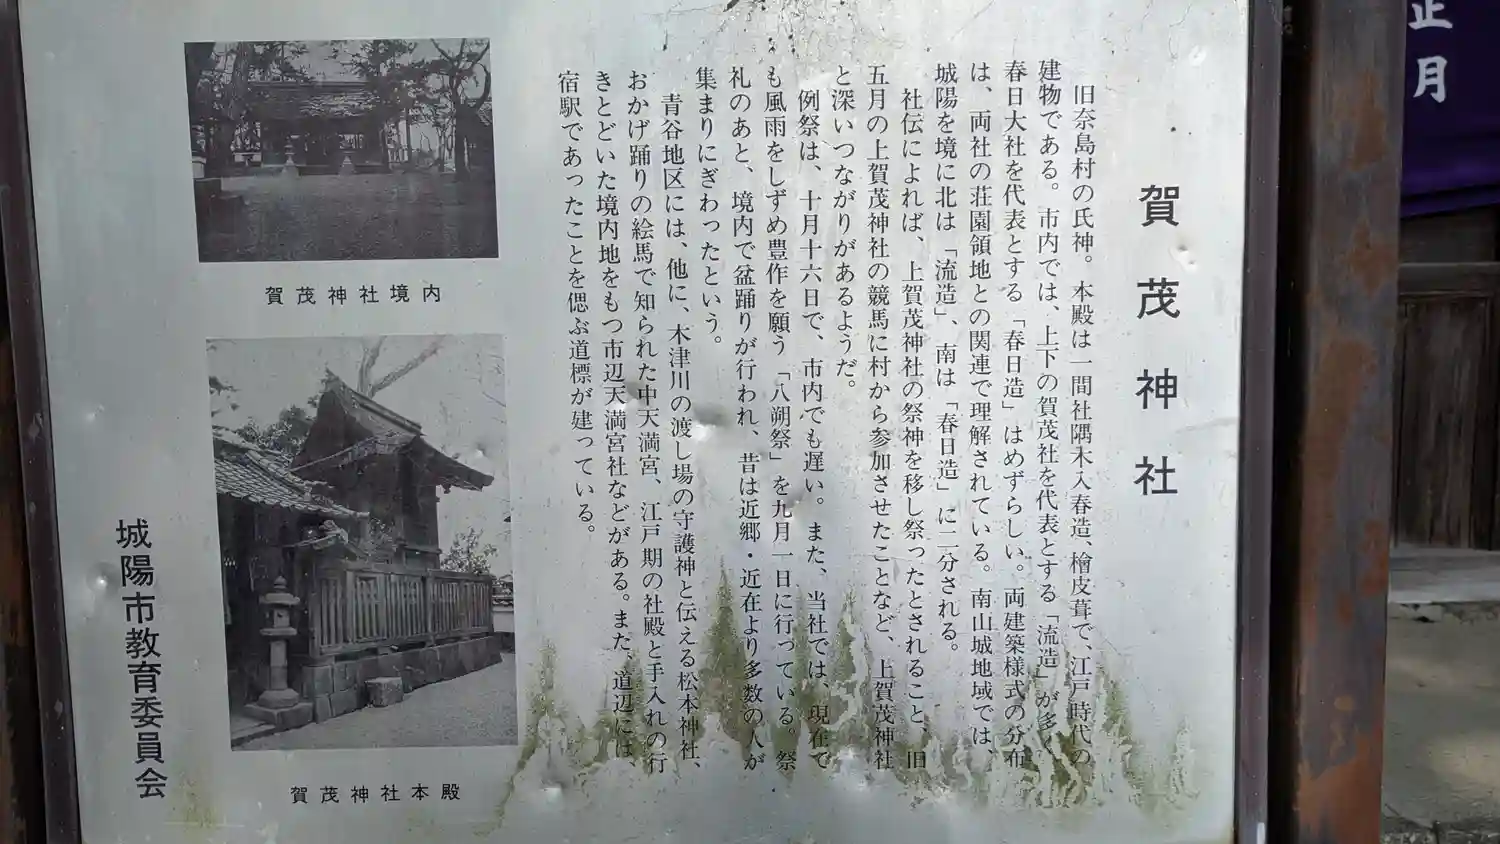 賀茂神社
旧奈島村の氏神。本殿は一間社隅木入春造、檜皮葺で、江戸時代の
建物である。市内では、上下の賀茂社を代表とする「流造」が多く
春日大社を代表とする「春日造」はめずらしい。両建築様式の分布
は、両社の荘園領地との関連で理解されている。南山城地域では、
城陽を境に北は「流造」、南は「春日造」に二分される。
社伝によれば、上賀茂神社の祭神を移し祭ったとされること、旧
五月の上賀茂神社の競馬に村から参加させたことなど、上賀茂神社
と深いつながりがあるようだ。
例祭は、十月十六日で、市内でも遅い。また、当社では、現在で
も風雨をしずめ豊作を願う「八朔祭」を九月一日に行っている。祭
礼のあと、境内で盆踊りが行われ、昔は近郷・近在より多数の人が
集まりにぎわったという。
青谷地区には、他に、木津川の渡し場の守護神と伝える松本神社、
おかげ踊りの絵馬で知られた中天満宮、江戸期の社殿と手入れの行
きとどいた境内地をもつ市辺天満宮社などがある。また、道辺には、
宿駅であったことを偲ぶ道標が建っている。
賀茂神社境内
賀茂神社本殿
城陽市教育委員会
正月